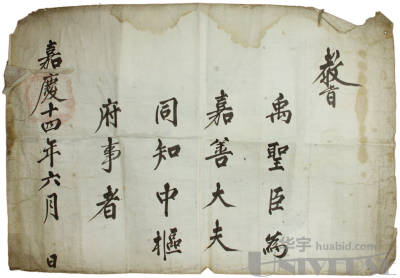 敎旨
禹聖臣為
嘉善大夫
同知中樞
府事者
嘉慶十四年六月 日
华宇 huabid.com
UNIVERSE